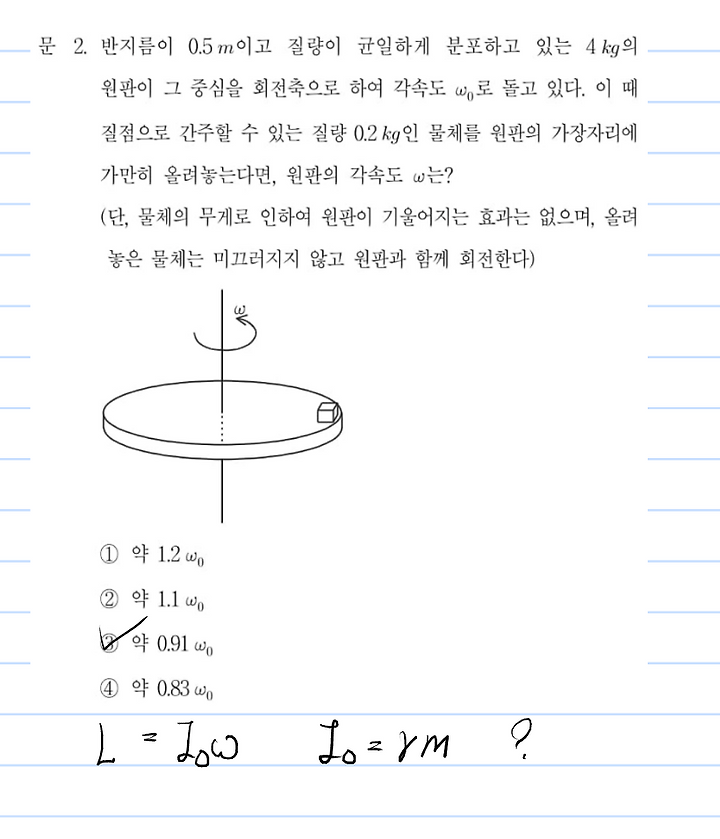 문 2. 반지름이 0.5 m이고 질량이 균일하게 분포하고 있는 4 kg의
원판이 그 중심을 회전축으로 하여 각속도 ω₀로 돌고 있다. 이 때
질점으로 간주할 수 있는 질량 0.2 kg인 물체를 원판의 가장자리에
가만히 올려놓는다면, 원판의 각속도 ω는?
(단, 물체의 무게로 인하여 원판이 기울어지는 효과는 없으며, 올려
놓은 물체는 미끄러지지 않고 원판과 함께 회전한다)
ω
① 약 1.2 ω₀
② 약 1.1 ω₀
③ 약 0.91 ω₀
④ 약 0.83 ω₀
L = I₀ω I₀ = rm ?